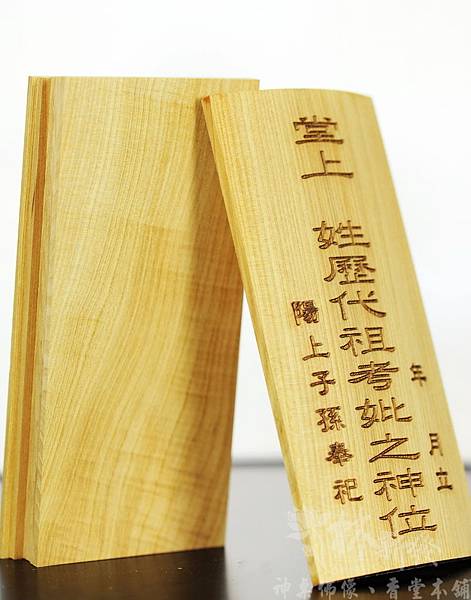 堂上
姓歷代祖考妣之神位
年 月立
陽上子孫奉祀
神桌佛像、香堂本舖